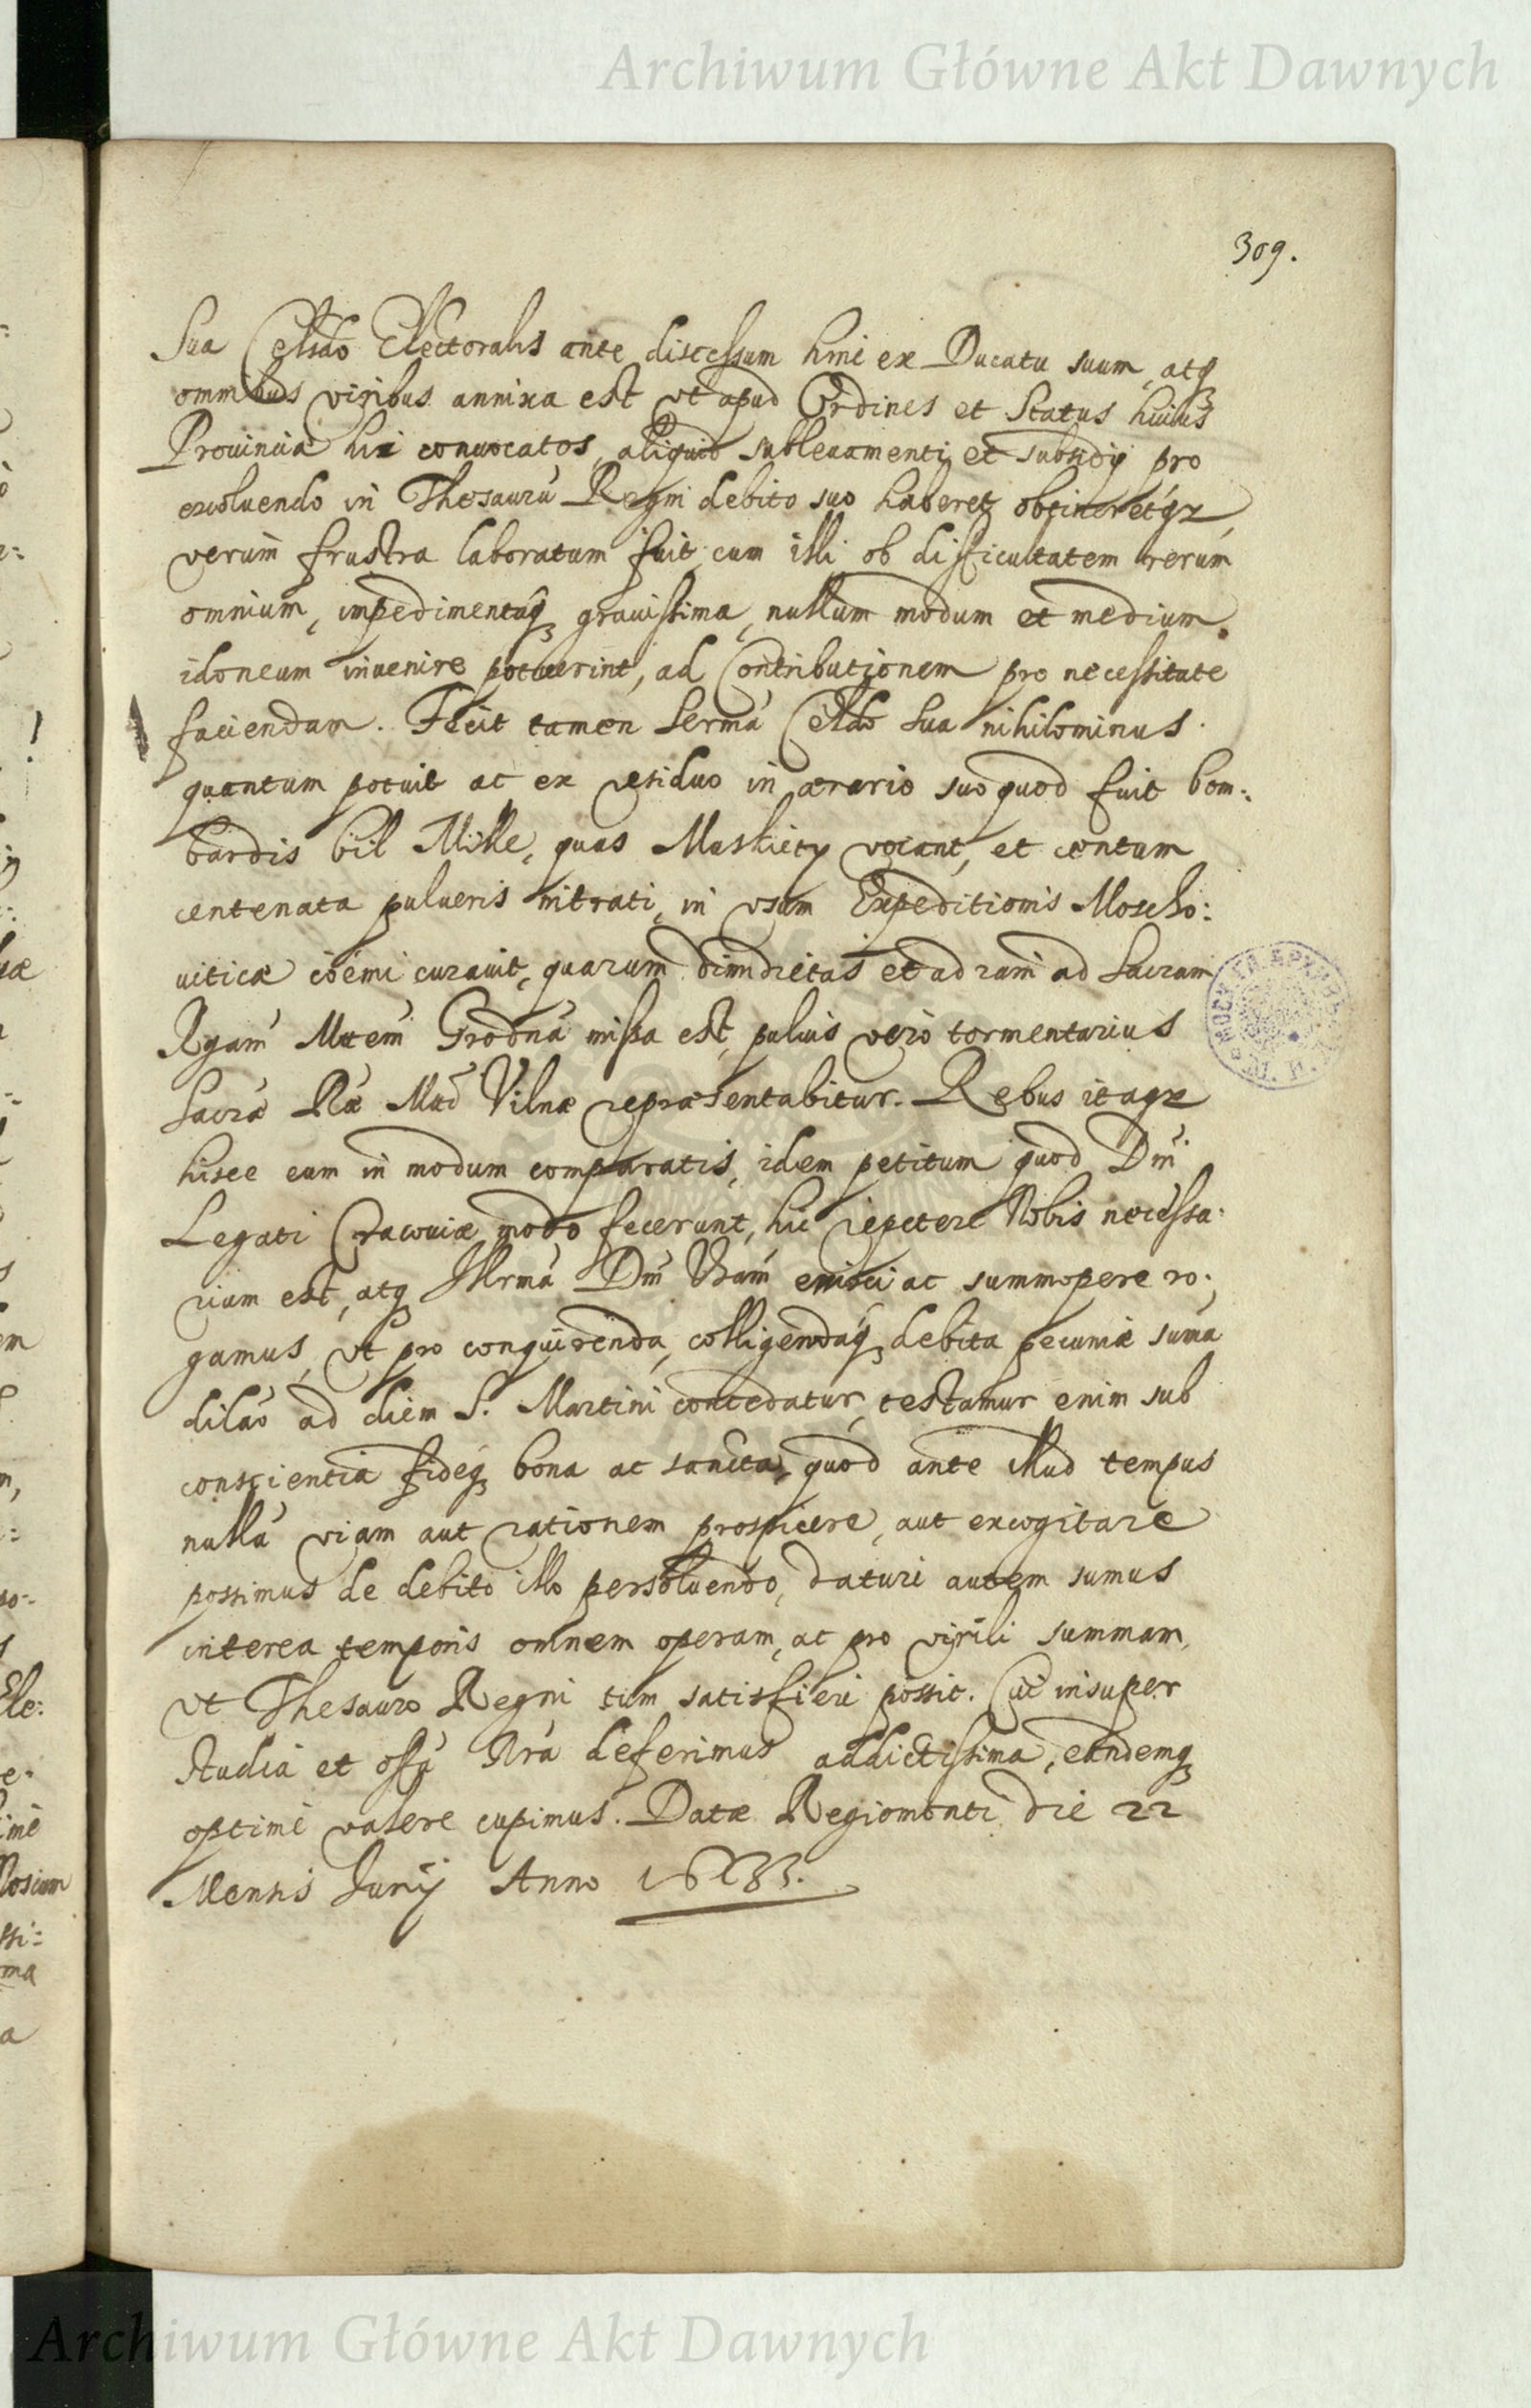 Archiwum Główne Akt Dawnych
309.
Sua Celsdo Electoralis ante discessum hinc ex Ducatu suum, atq
omnibus viribus annixa est vt apud Ordines et Status huius
Prouinciæ hic conuocatos, aliquid subleuamenti et subsidij pro
exoluendo in Thesaurū Regni debito suo haberet obtineretqz,
verum frustra laboratum fuit cum illi ob difficultatem rerum
omnium, impedimentaq grauissima, nullum modum et medium
idoneum inuenire potuerint, ad Contributionem pro necessitate
faciendam. Fecit tamen Serma Celsdo Sua nihilominus
quantum potuit ac ex residuo in ærario suo quod fuit bom:
bardis bil Mille, quas Muskiety vocant, et centum
centenata pulueris nitrati, in vsum Expeditionis Moscho:
uiticæ coemi curauit, quarum dimidietas et ad ad Sacram
Rgam Mtem Grodnā missa est, puluis vero tormentarius
Sacræ Ræ Mti Vilnæ repræsentabitur. Rebus itaqz
hisce eum in modum comparatis, idem petitum quod Dni
Legati Cracouiæ modo fecerunt, hic repetere Nobis necessa:
rium est, atq Illrmā Dm Vram enixe ac summopere ro:
gamus, vt pro conquirenda, colligendaq debita pecuniæ suma
dilāo ad diem S. Martini concedatur, testamur enim sub
conscientia fideq bona ac sancta, quod ante illud tempus
nullā viam aut rationem prospicere, aut excogitare
possimus de debito illo persoluendo, daturi autem sumus
interea temporis omnem operam, ac pro virili summam,
vt Thesauro Regni tum satisfieri possit. Cui insuper
studia et offa Nra deferimus addictissima, eandemq
optime valere cupimus. Datæ Regiomonti die 22
Mensis Junij Anno 1633.
Archiwum Główne Akt Dawnych